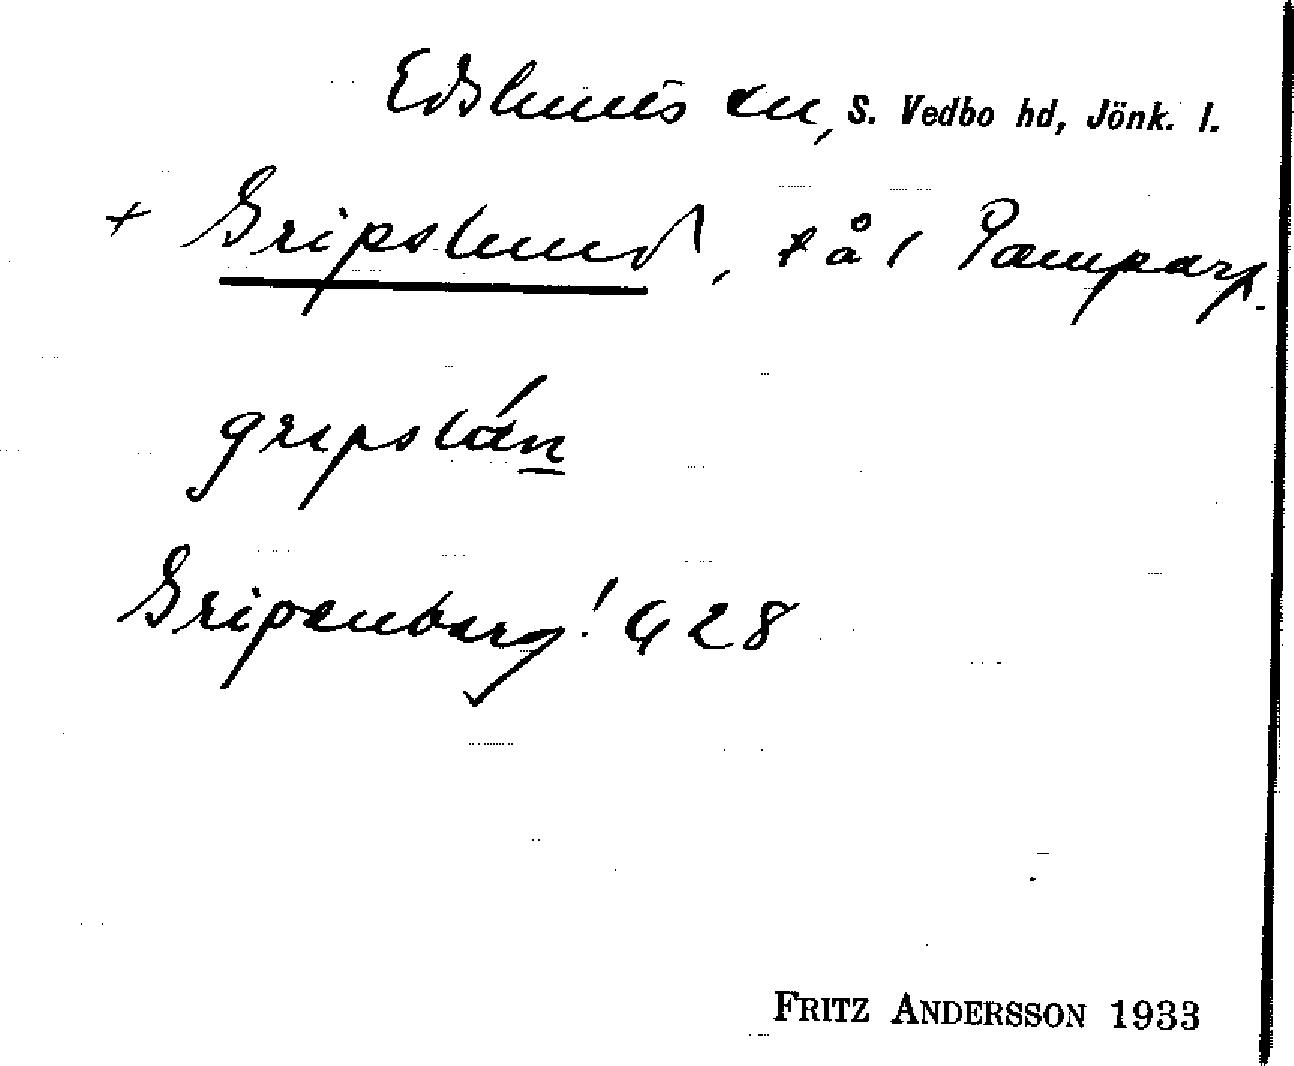 Edshults sn, S. Vedbo hd, Jönk. l.
+ Gripslund, t å / Pamparp.
gripslán
Gripenberg! G 28
FRITZ ANDERSSON 1933